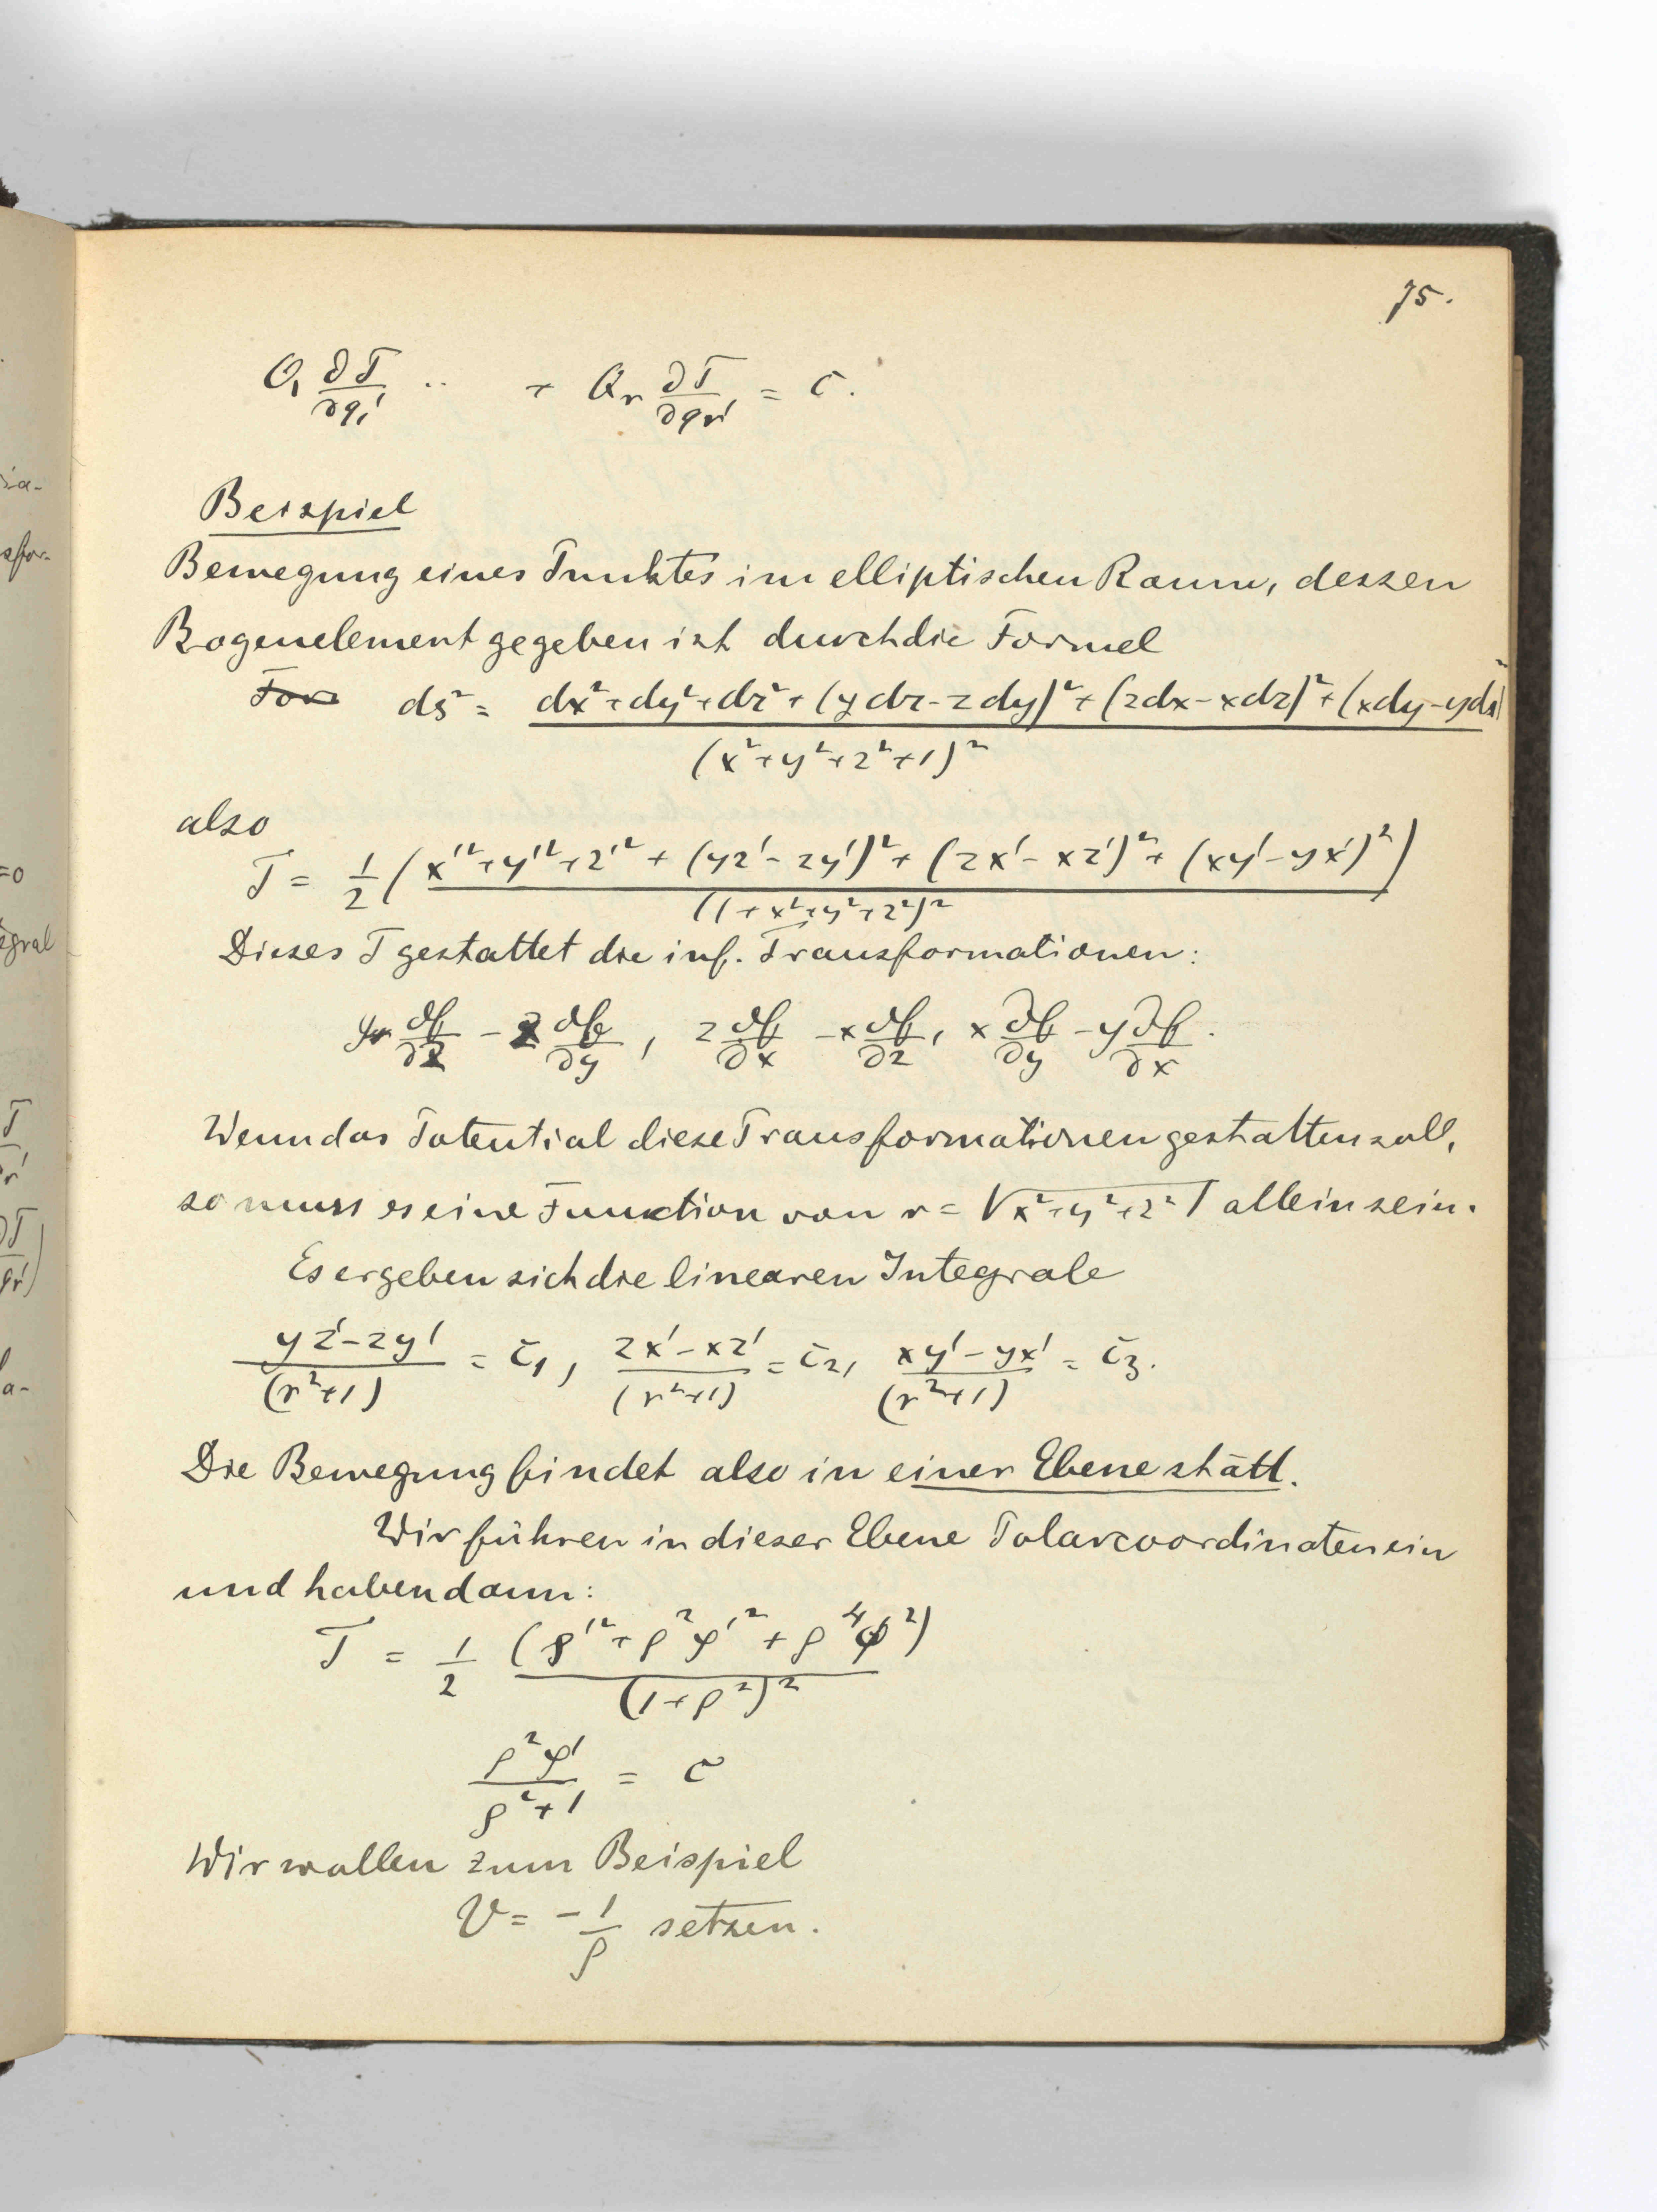 75.
Q₁ ∂T/∂q₁' ‥ + Qᵣ ∂T/∂qᵣ' = c.
Beispiel
Bewegung eines Punktes im elliptischen Raum, dessen
Bogenelement gegeben ist durch die Formel
ds² = (dx²+dy²+dz²+(ydz-zdy)²+(zdx-xdz)²+(xdy-ydx)²)/(x²+y²+z²+1)²
also
T = 1/2 (x'²+y'²+z'²+(yz'-zy')²+(zx'-xz')²+(xy'-yx')²)/(1+x²+y²+z²)²
Dieses T gestattet die inf. Transformationen:
y ∂f/∂z - z ∂f/∂y, z ∂f/∂x - x ∂f/∂z, x ∂f/∂y - y ∂f/∂x.
Wenn das Potential diese Transformationen gestatten soll,
so muss es eine Funktion von r = √x²+y²+z² allein sein.
Es ergeben sich die linearen Integrale
(yz'-zy')/(r²+1) = c₁, (zx'-xz')/(r²+1) = c₂, (xy'-yx')/(r²+1) = c₃.
Die Bewegung findet also in einer Ebene statt.
Wir führen in dieser Ebene Polarcoordinaten ein
und haben dann:
T = 1/2 (ρ'²+ρ²φ'²+ρ⁴φ²)/(1+ρ²)²
ρ²φ'/(ρ²+1) = c
Wir wollen zum Beispiel
V = -1/ρ setzen.